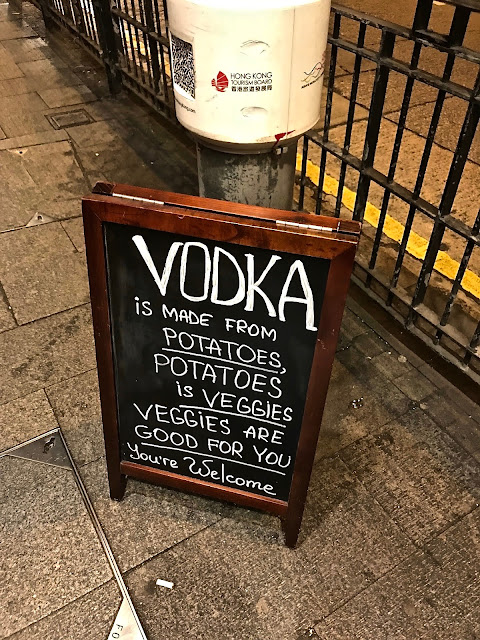 HONG KONG
TOURISM BOARD
香港旅遊發展局
VODKA
is MADE FROM
POTATOES,
POTATOES
is VEGGIES
VEGGIES ARE
GOOD FOR YOU
You're Welcome
FO